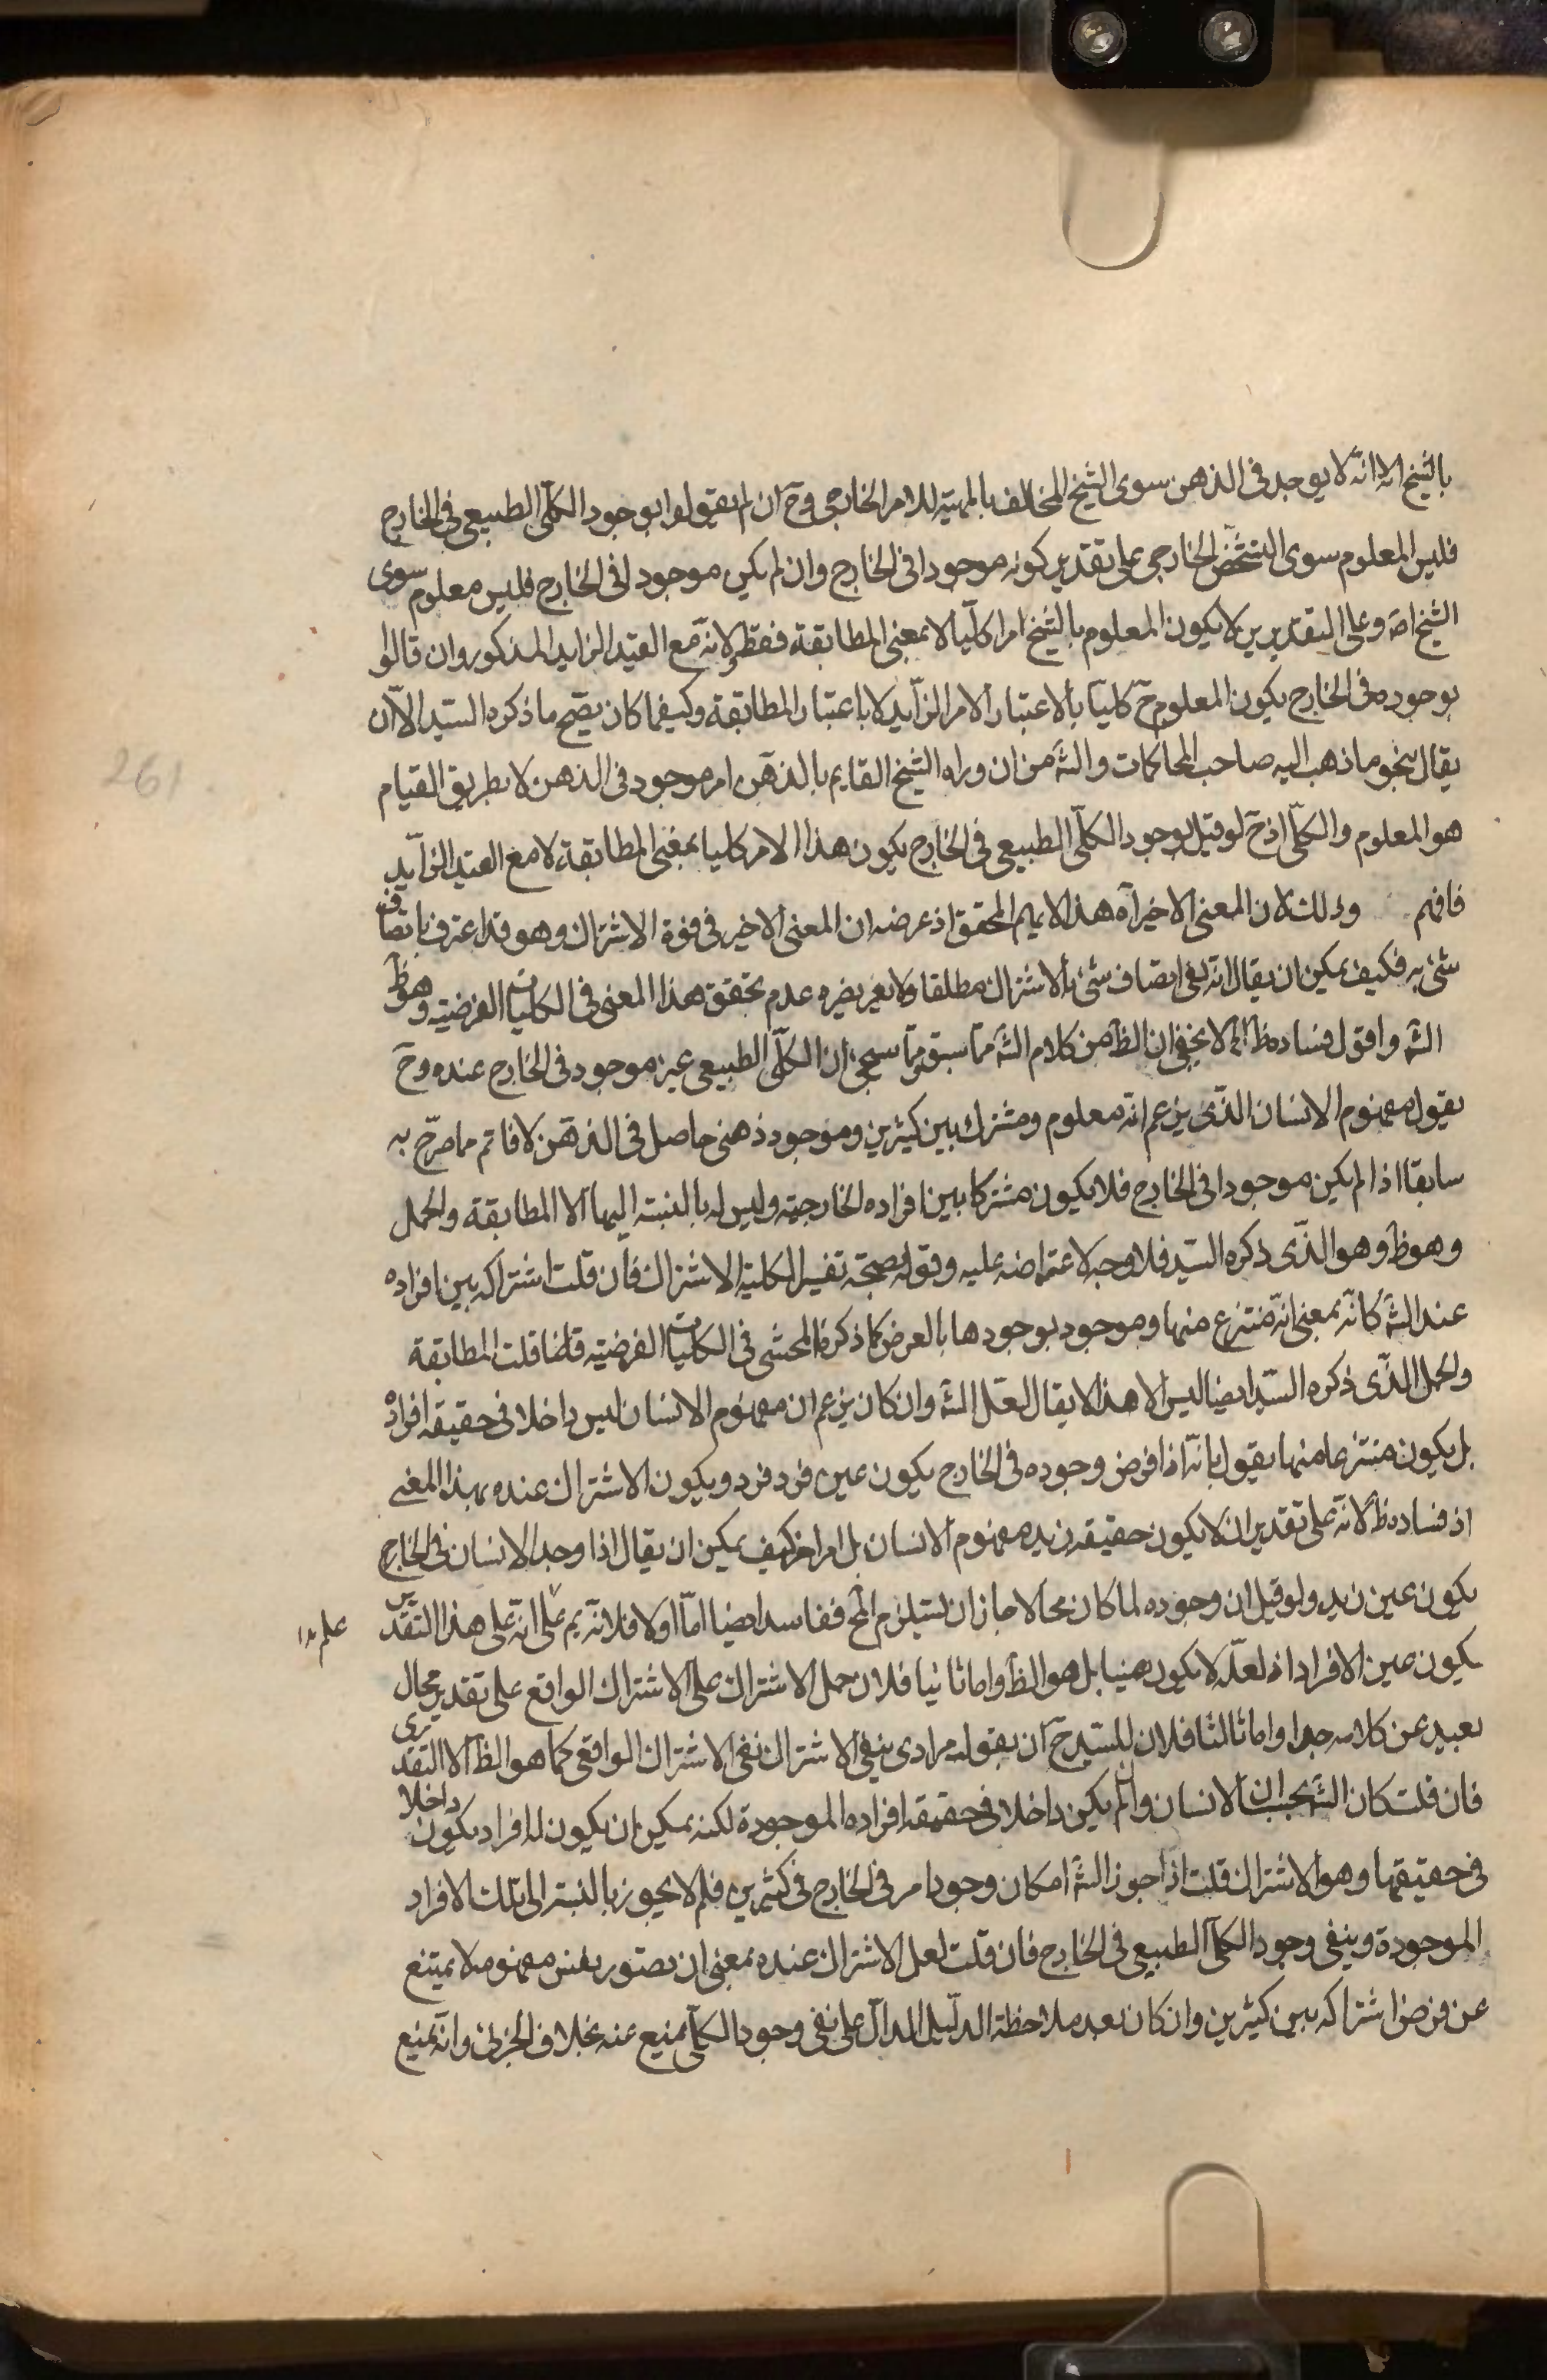 بالشبح الا انه لا يوجد فى الذهن سوى الشبح المخالف بالمهية للامر الخارجى وح ان لم يقولوا بوجود الكلى الطبيعى فى الخارج
فليس المعلوم سوى الشخص الخارجى على تقدير كونه موجودا فى الخارج وان لم يكن موجودا فى الخارج فليس معلوم سوى
الشبح اصَ وعلى التقديرين لا يكون المعلوم بالشبح امرا كليا لا بمعنى المطابقة فقط ولا انه مع القيد الزايد المذكور وان قالوا
بوجوده فى الخارج يكون المعلوم ح كليا بالاعتبار الامر الزايد لا باعتبار المطابقة وكيفما كان يصح ما ذكره السيد الا ان
يقال بنحو ما ذهب اليه صاحب المحاكمات والشَ من ان وراء الشبح القايم بالذهن امر موجود فى الذهن لا بطريق القيام
هو المعلوم والكلى اذ ح لو قيل بوجود الكلى الطبيعى فى الخارج يكون هذا الامر كليا بمعنى المطابقة لا مع القيد الزايد
فافهم وذلك لان المعنى الاخير آه هذا لا يلايم المحقق اذ غرضه ان المعنى الاخير فى قوة الاشتراك وهو قد اعترف باتصاف
شئ به فكيف يمكن ان يقال انه نفى اتصاف شئ بالاشتراك مطلقا ولا يضره عدم تحقق هذا المعنى فى الكليات الفرضية وهو ظَ
الشَ واقول فساده ظَ اذ لا يخفى ان الظَ من كلام الشَ مما سبق ومما سيجئ ان الكلى الطبيعى غير موجود فى الخارج عنده وح
يقول مفهوم الانسان الذى يزعم انه معلوم ومشترك بين كثيرين وموجود ذهنى حاصل فى الذهن لا قايم ما صرح به
سابقا اذا لم يكن موجودا فى الخارج فلا يكون مشتركا بين افراده الخارجية وليس له بالنسبة اليها الا المطابقة والحمل
وهو ظَ وهو الذى ذكره السيد فلا وجه لاعتراضه عليه وقوله بصحة تفسير الكلية الاشتراك فان قلت اشتراكه بين افراده
عند الشَ كانه بمعنى انه منتزع منها وموجود بوجودها بالعرض كما ذكره المحشى فى الكليات الفرضية قلت المطابقة
والحمل الذى ذكره السيد ايضا ليس الا هذا لا يقال لعل الشَ وان كان يزعم ان مفهوم الانسان ليس داخلا فى حقيقه افراده
بل يكون منتزعا منها يقول بانه اذا فرض وجوده فى الخارج يكون عين فرد فرد ويكون الاشتراك عنده بهذا المعنى
اذ فساده ظَ لانه على تقدير ان لا يكون حقيقه زيد مفهوم الانسان بل امر اخر كيف يمكن ان يقال اذا وجد الانسان فى الخارج
يكون عين زيد ولو قيل ان وجوده لما كان محالا جاز ان يستلزم المح ففاسد ايضا اما اولا فلانه يم على انه على هذا التقدير
يكون عين الافراد اذ لعله لا يكون هينا بل هو الظَ واما ثانيا فلان حمل الاشتراك على الاشتراك الواقع على تقدير محال
بعيد عن كلامه جدا واما ثالثا فلان للسيد ح ان يقول مرادى بنفى الاشتراك نفى الاشتراك الواقعى كما هو الظَ لا التقديرى
فان قلت كان الشَ بحسب ان الانسان وان لم يكن داخلا فى حقيقه افراده الموجودة لكنه يمكن ان يكون له افراد يكون داخلا
فى حقيقتها وهو الاشتراك قلت اذا جوز الشَ امكان وجود امر فى الخارج فى كثيرين فلم لا يجوز بالنسبة الى تلك الافراد
الموجودة وينفى وجود الكلى الطبيعى فى الخارج فان قلت لعل الاشتراك عنده بمعنى ان تصور نفس مفهومه لا يمتنع
عن فرض اشتراكه بين كثيرين وان كان بعد ملاحظة الدليل الدال على نفى وجود الكلى يمنع عنه بخلاف الجزئى وانه يمنع
261